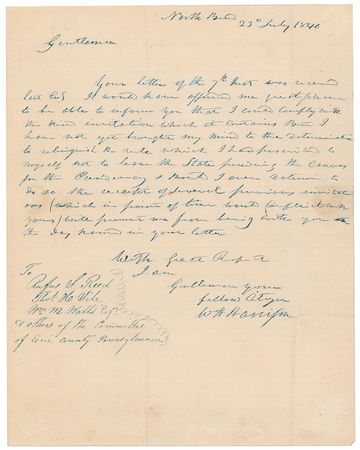 North Bend
23d July 1840
Gentlemen
Your letter of the 7th Inst was received
last It would have afforded me great pleasure
to be able to inform you that I could comply with
the kind invitation which it contains But I
have not yet brought my mind to the determination
to relinquish the rule which I had prescribed to
myself not to leave the State pending the Canvass
for the Presidency & Should I ever determine to
do so the receipt of several previous invitat
ions (which in point of time would conflict with
yours) will prevent me from being with you on
the day named in your letter
With Great Respect
I am
Gentlemen your
fellow Citizen
W H Harrison
To
Rufus S Reed
Thos. H. Sile
Wm M. Watts Esqs
& others of the Committee
of Erie County Pennsylvania